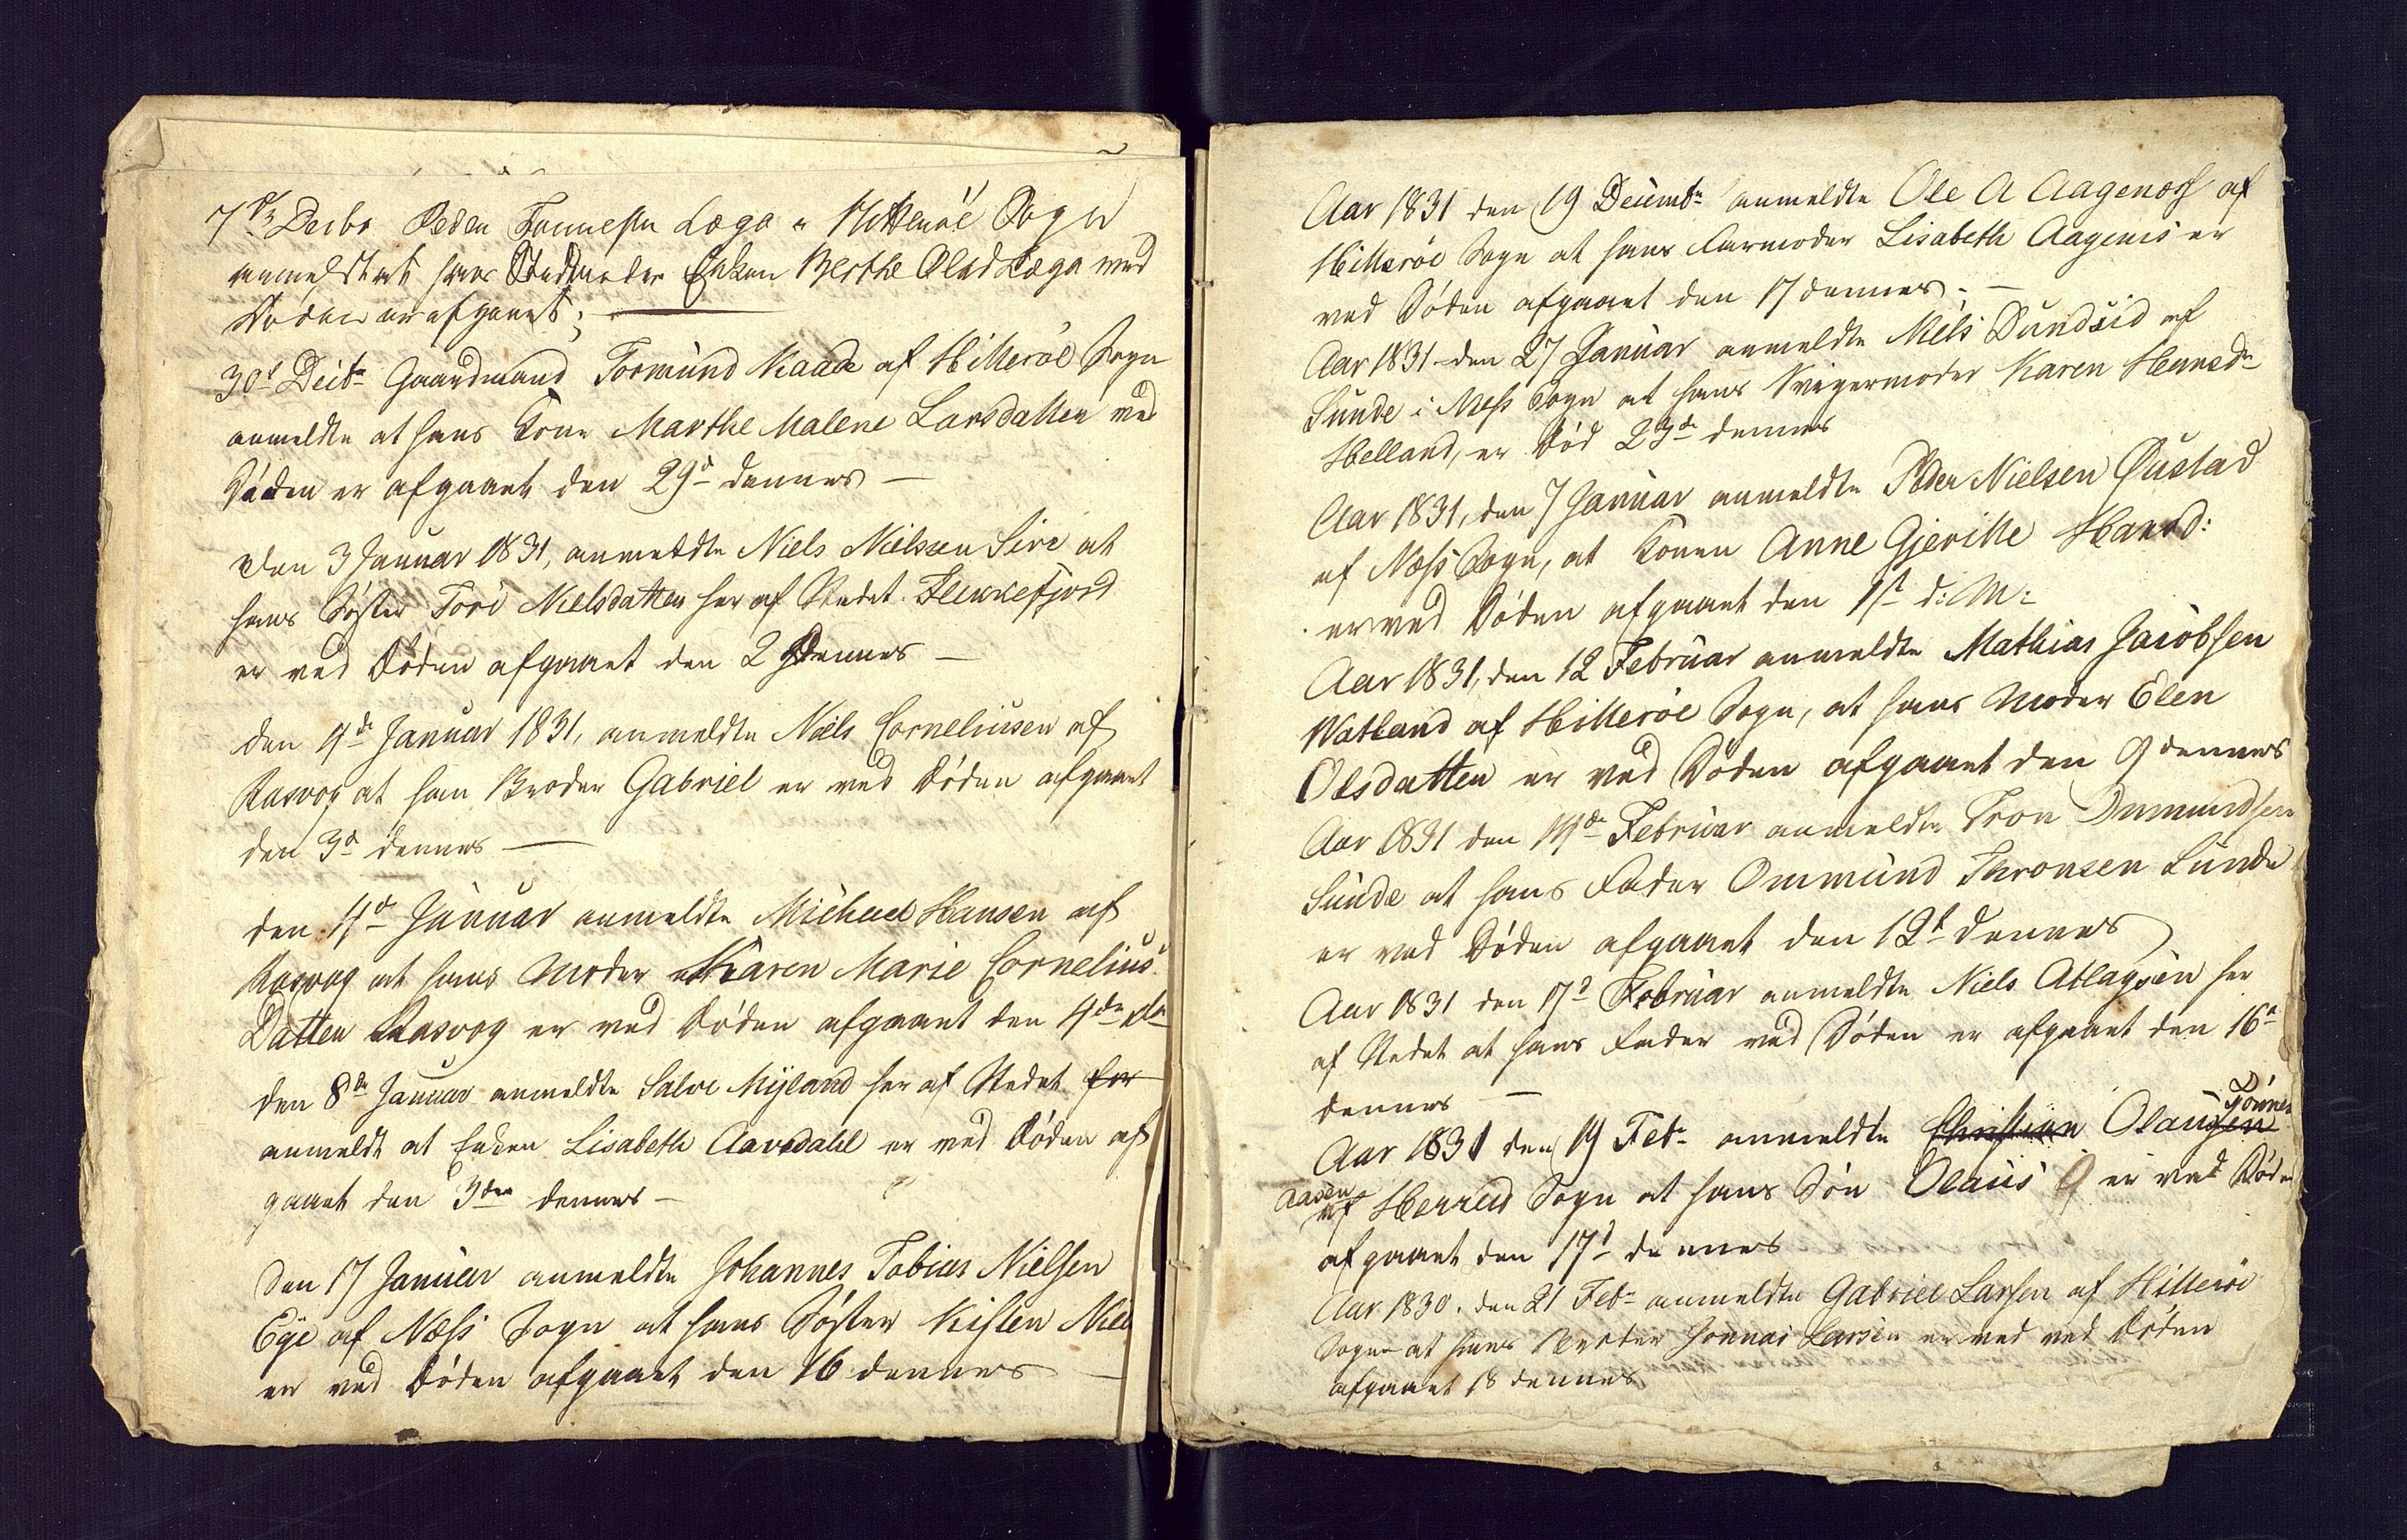 7de Decbr Peder Tønnesen Loga Hitterøe Sogn
anmeldt at hans Enken Berthe Olsd Loga ved
Døden er afgaaet;
30t Decbr Gaardmand Tormund Kaade af Hitterøe Sogn
anmeldte at hans Kone Marthe Malene Larsdatter ved
Døden er afgaaet den 29de dennes —
den 3 Januar 1831, anmeldte Niels Nielsen Sire at
hans Søster Tori Nielsdatter her af Stedet Flekkefjord
er ved Døden afgaaet den 2 dennes —
den 4de Januar 1831, anmeldte Niels Corneliusen af
Rasvog at han Broder Gabriel er ved Døden afgaaet
den 3de dennes —
den 4de Januar anmeldte Michael Hansen af
Rasvog at hans Moder Karen Marie Cornelius
Datter Rasvog er ved Døden afgaaet den 4de
den 8de Januar anmeldte Salve Myland her af Stedet for
anmeldt at Enken Lisabeth Aavedahl er ved Døden af
gaaet den 3den dennes —
Den 17 Januar anmeldte Johannes Tobias Nielsen
Eye af Næss Sogn at hans Søster Kisten Niel
er ved Døden afgaaet den 16 dennes —
Aar 1831 den 19 Decembr anmeldte Ole A Aagenæs af
Hitterøe Sogn at hans Farmoder Lisabeth Aagenis er
ved Døden afgaaet den 17 dennes. —
Aar 1831 den 27 Januar anmeldte Niels af
Sunde i Ness Sogn at hans Svigermoder Karen Hansdr
Helland, er Død 23de dennes
Aar 1831, den 7 Januar anmeldte Peder Nielsen Øustad
af Næss Sogn, at Konen Anne Gjeritte Hansd:
er ved Døden afgaaet den 1st d: M:
Aar 1831, den 12 Februar anmeldte Mathias Jacobsen
Watland af Hitterøe Sogn, at hans Moder Elen
Olsdatter er ved Døden afgaaet den 9 dennes
Aar 1831 den 14de Februar anmeldte Tron Ommundsen
Sunde at hans Fader Ommund Thronsen Sunde
er ved Døden afgaaet den 12t dennes
Aar 1831 den 17d Februar anmeldte Niels Atlaysen her
af Stedet at hans Fader ved Døden er afgaaet den 16d
dennes —
Tønnes
Aar 1831 den 19 Febr anmeldte Christian Olausen
Aasen
af Herred Sogn at hans Søn Olaus er ved Døden
afgaaet den 17d dennes
Aar 1830. den 21 Febr anmeldte Gabriel Larsen af Hitterøe
Sogn at hans Broder Jonnas Larsen er ved ved Døden
afgaaet 18 dennes